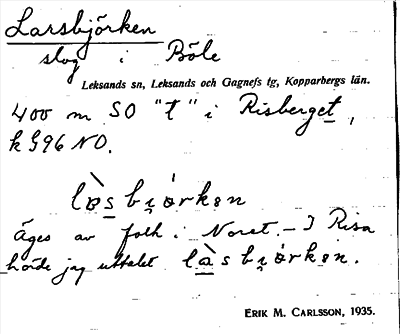 Larsbjörken
slog i Böle
Leksands sn, Leksands och Gagnefs tg, Kopparbergs län.
400 m SO "t" i Risberget,
k 996 NO.
là̱sbi̯ǿrkɐn
Äges av folk i Noret. – I Risa
hörde jag uttalet là̱sbi̯ǿrkɐn.
ERIK M. CARLSSON, 1935.